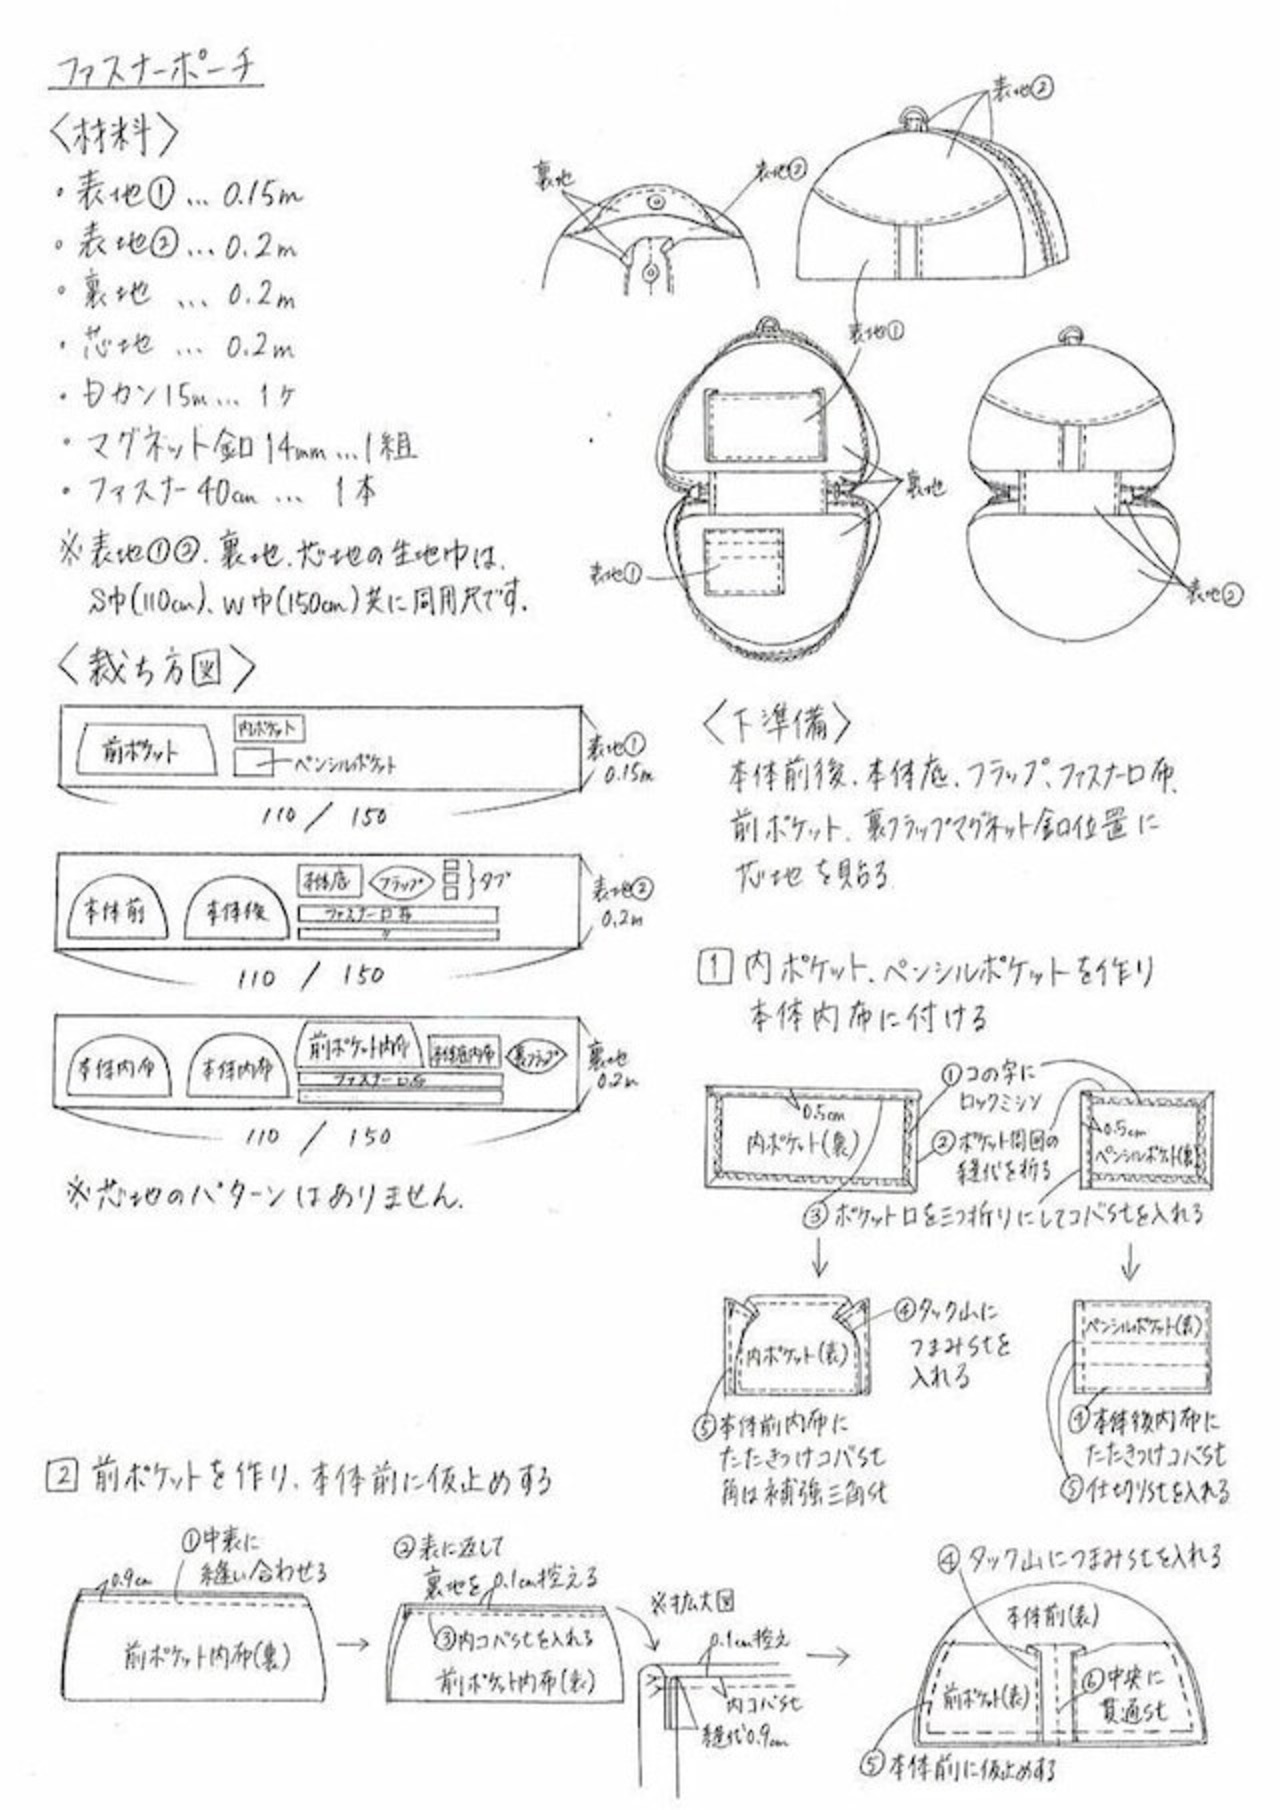 ファスナーポーチ
〈材料〉
・表地① … 0.15m
・表地② … 0.2m
・裏地 … 0.2m
・芯地 … 0.2m
・Dカン15m … 1ケ
・マグネット金口14mm … 1組
・ファスナー40cm … 1本
※表地①②、裏地、芯地の生地巾は、
S巾(110cm)、W巾(150cm)共に同用尺です。
表地②
裏地
表地②
表地①
裏地
表地①
表地②
〈裁ち方図〉
前ポケット
内ポケット
ペンシルポケット
表地①
0.15m
110 / 150
本体前
本体後
本体底
フラップ
タブ
ファスナー口布
〃
表地②
0.2m
110 / 150
本体内布
本体内布
前ポケット内布
本体底内布
裏フラップ
ファスナー口布
裏地
0.2m
110 / 150
※芯地のパターンはありません。
〈下準備〉
本体前後、本体底、フラップ、ファスナー口布、
前ポケット、裏フラップマグネット金口位置に
芯地を貼る
1 内ポケット、ペンシルポケットを作り
本体内布に付ける
①コの字に
ロックミシン
0.5cm
内ポケット(裏)
②ポケット周囲の
縫代を折る
0.5cm
ペンシルポケット(裏)
③ポケット口を三つ折りにしてコバstを入れる
内ポケット(表)
④タック山に
つまみstを
入れる
⑤本体前内布に
たたきつけコバst
角は補強三角st
ペンシルポケット(表)
④本体後内布に
たたきつけコバst
⑤仕切りstを入れる
2 前ポケットを作り、本体前に仮止めする
①中表に
縫い合わせる
0.9cm
前ポケット内布(裏)
②表に返して
裏地を0.1cm控える
③内コバstを入れる
前ポケット内布(表)
※拡大図
0.1cm控え
内コバst
縫代0.9cm
④タック山につまみstを入れる
本体前(表)
前ポケット(表)
⑥中央に
貫通st
⑤本体前に仮止めする